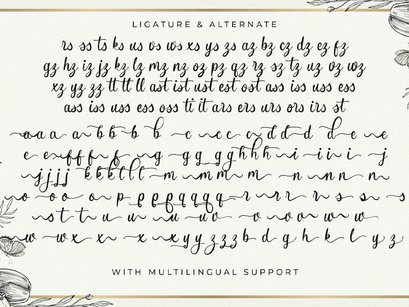 LIGATURE & ALTERNATE
rs ss ts ks us vs ws xs ys zs az bz cz dz ez fz
gz hz iz jz kz lz mz nz oz pz qz rz sz tz uz vz wz
xz yz zz tt ll ll ast ist ust est ost ass iss uss ess
ass iss uss ess oss ti it ars ers urs ors irs st
a a a a b b b b c c c c d d d d e e
e e f f f f g g g g h h h i i i i j
j j j j k k k l l l m m m m n n n n
o o o o p p p p q q q q r r r r s s s
s t t u u u u v o v o v w w
w w x x x x y y z z z b d g h k l y z
WITH MULTILINGUAL SUPPORT